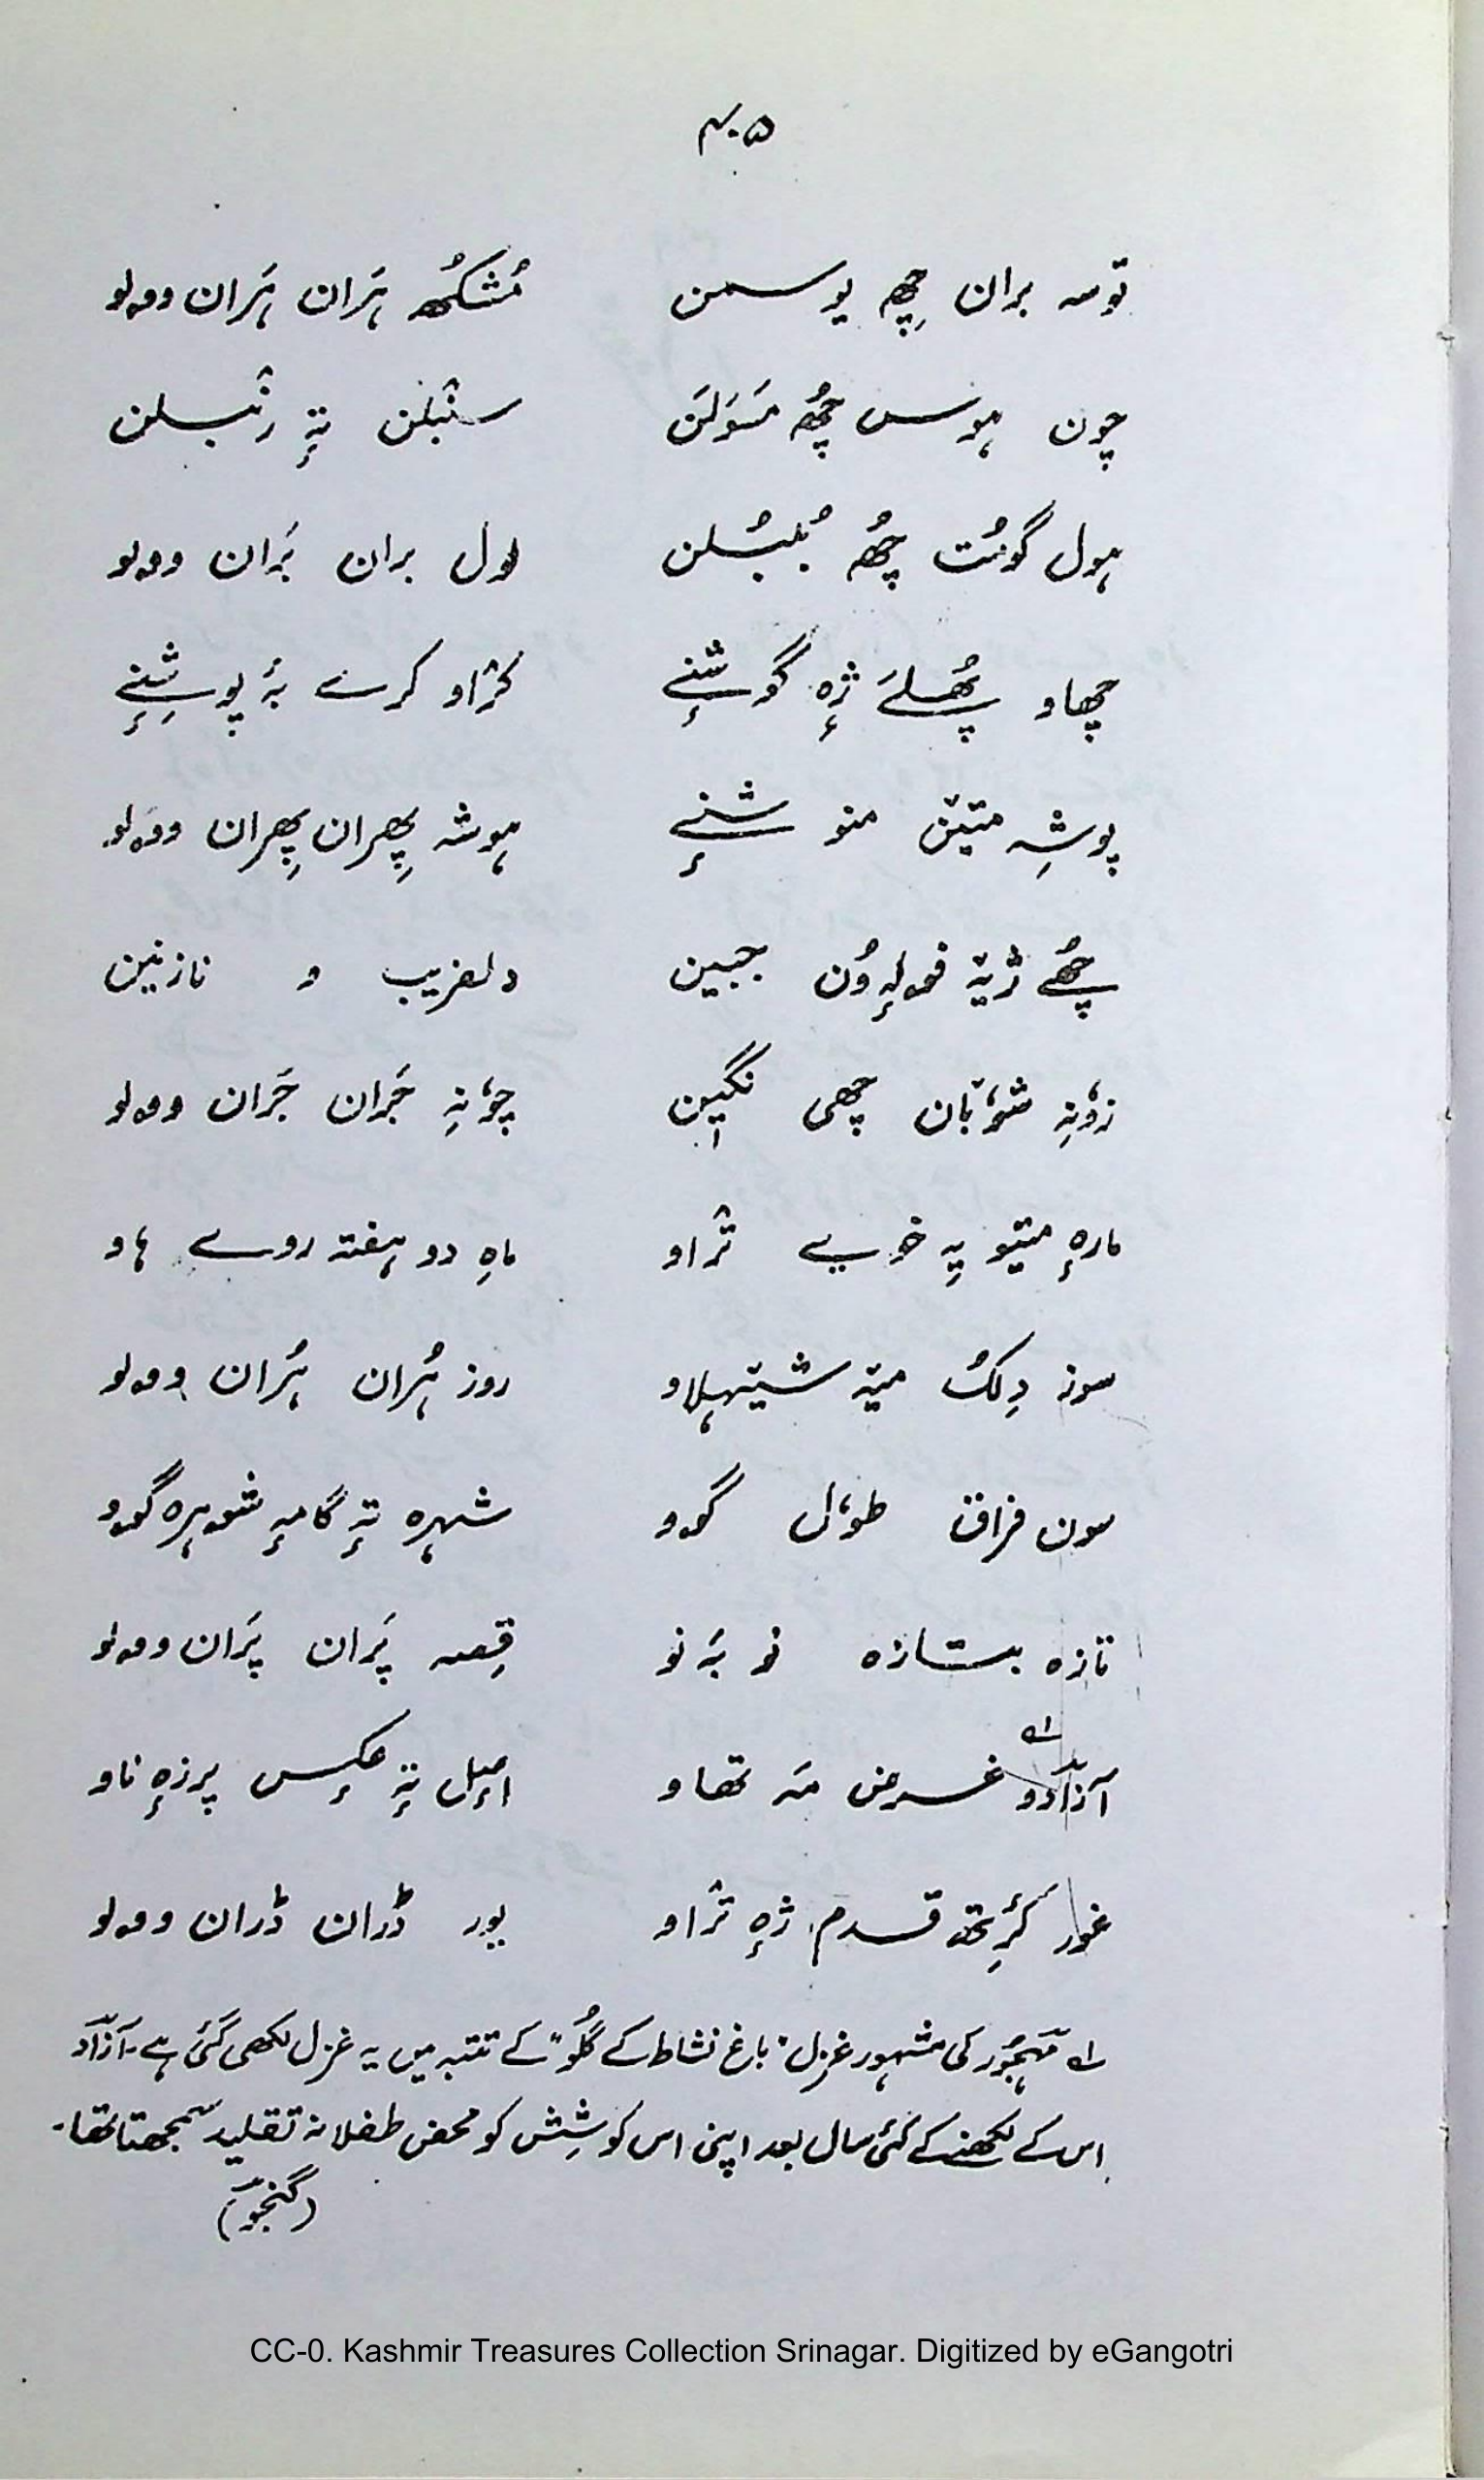 ۴۰۵
توسہ بران چھِ یوسمن مُشکُھ ہَران ہَران وولو
چون ہوس چھُ مَسوَلَن سنٛبلن تہٕ رنٛبلن
ہول گومُت چھُ بُلبُلن لول بران بَران وولو
چھاو پھُلَے ژٕہ گوشنےٕ کژاو کرے بہٕ پوشِنےٕ
پوشِہ متین منو شنےٕ ہوشہ پھِران پھِران وولو
چھُے ژیتہ فولہٕ وُن جبین دلفریب و نازنین
زوٗنِہ شوٗبان چھی نگین چوٗنہِ جَران جَران وولو
مارہٕ متیو یہِ خوے تراو ماہِ دو ہفتہ روے ہاو
سوز دِلُک میتہ شیتہلاو روز ہُران ہُران وولو
سون فراق طوٗل گوو شہرہ تہٕ گامہٕ شوہرہ گوو
تازہ بتازہ نو بہَ نو قِصہ پَران پَران وولو
آزادو ؎۱ غرض مَہ تھاو اصٕل تہٕ عکٕس پرزہٕ ناو
غور کٔرِتھ قدم ژٕہ تراو پور ڈران ڈران وولو
؎۱ مہجُور کی مشہور غزل "باغ نشاط کے گُلو" کے تتبہ میں یہ غزل لکھی گئی ہے۔ آزاد
اس کے لکھنے کے کئی سال بعد اپنی اس کوشِش کو محض طفلانہ تقلید سمجھتا تھا۔
(گنجو)
CC-0. Kashmir Treasures Collection Srinagar. Digitized by eGangotri